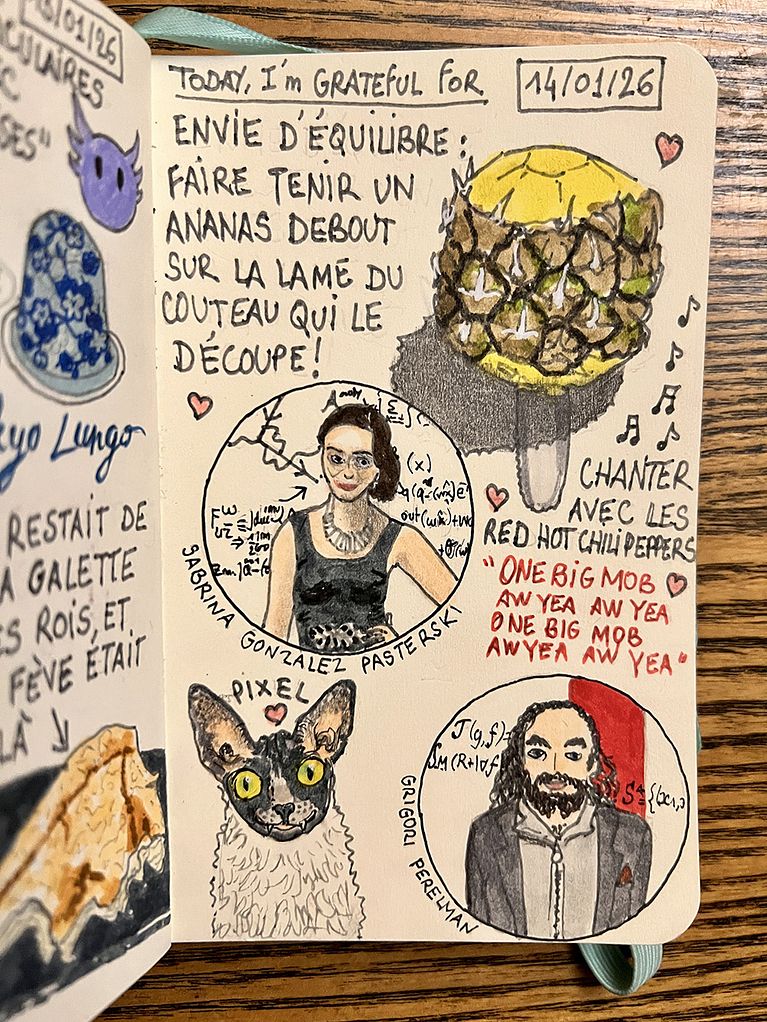 13/01/26
CULAIRES
TODAY, I'm GRATEFUL FOR
14/01/26
ENVIE D'ÉQUILIBRE :
FAIRE TENIR UN
ANANAS DEBOUT
SUR LA LAME DU
COUTEAU QUI LE
DÉCOUPE !
CHANTER
AVEC LES
RED HOT CHILI PEPPERS
"ONE BIG MOB
AW YEA AW YEA
ONE BIG MOB
AW YEA AW YEA"
SABRINA GONZALEZ PASTERSKI
PIXEL
GRIGORI PERELMAN
(x)
J(g,f)=
Lungo
RESTAIT DE
A GALETTE
ES ROIS, ET
FÈVE ÉTAIT
LÀ